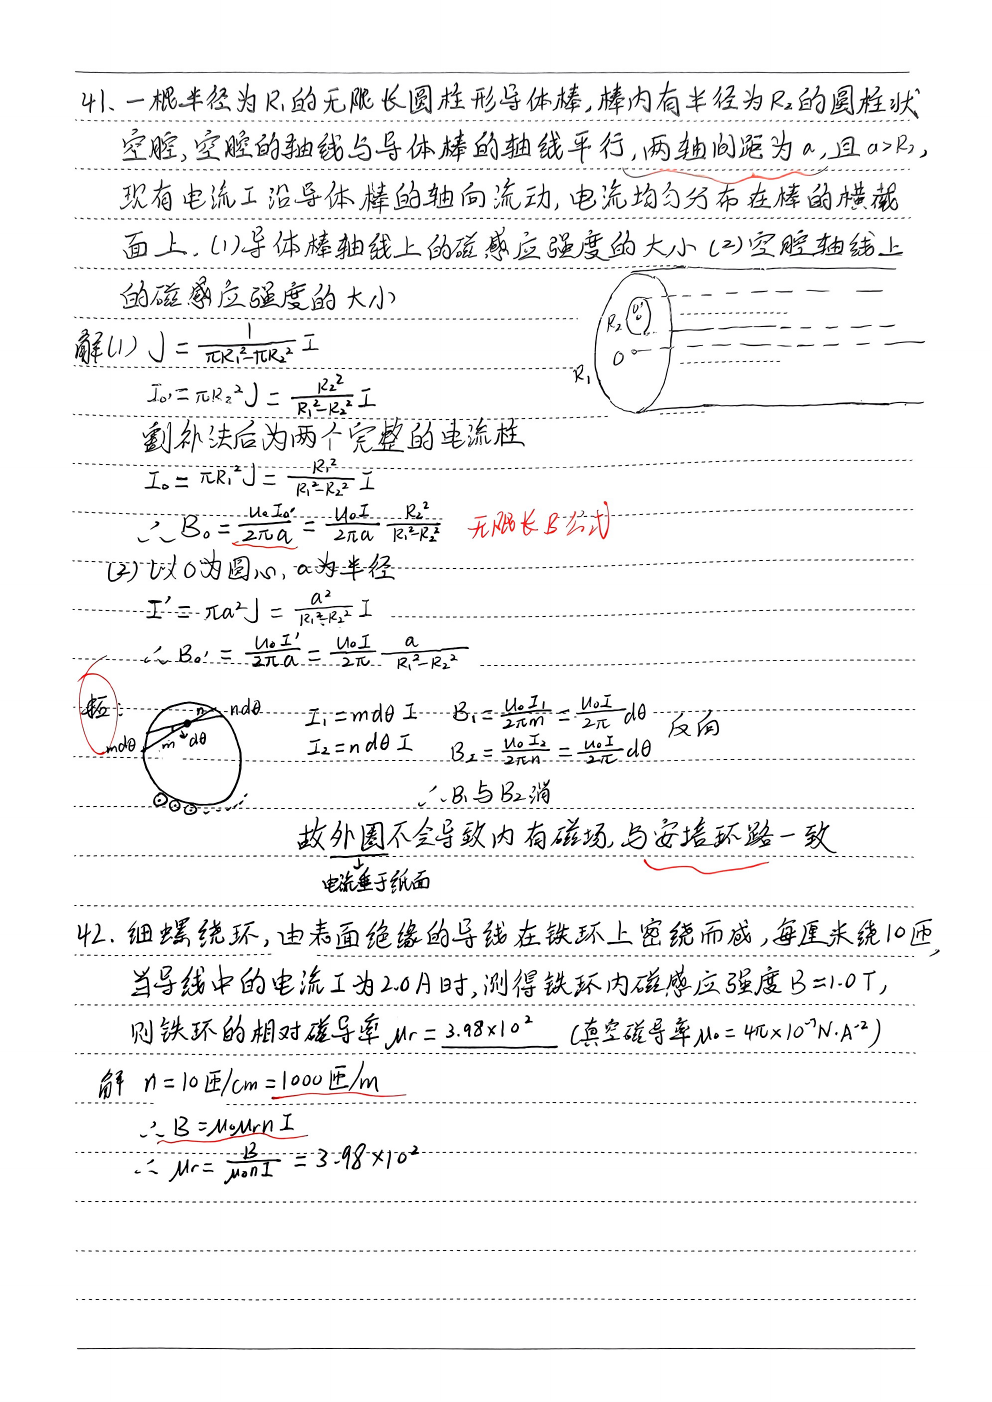 41、一根半径为R₁的无限长圆柱形导体棒,棒内有半径为R₂的圆柱状
空腔,空腔的轴线与导体棒的轴线平行,两轴间距为a,且a>R₂,
现有电流I沿导体棒的轴向流动,电流均匀分布在棒的横截
面上. (1)导体棒轴线上的磁感应强度的大小 (2)空腔轴线上
的磁感应强度的大小
R₂ O' O R₁
解(1) J = 1/(πR₁²-πR₂²) I
I₀' = πR₂²J = R₂²/(R₁²-R₂²) I
割补法后为两个完整的电流柱
I₀ = πR₁²J = R₁²/(R₁²-R₂²) I
∴ B₀ = μ₀I₀'/2πa = μ₀I/2πa R₂²/(R₁²-R₂²) 无限长B公式
(2) 以O为圆心, a为半径
I' = πa²J = a²/(R₁²-R₂²) I
∴ B₀' = μ₀I'/2πa = μ₀I/2π a/(R₁²-R₂²)
n ndθ mdθ m dθ
I₁ = mdθ I B₁ = μ₀I₁/2πm = μ₀I/2π dθ
I₂ = ndθ I B₂ = μ₀I₂/2πn = μ₀I/2π dθ 反向
∴ B₁与B₂消
故外圈不会导致内有磁场,与安培环路一致
电流垂于纸面
42. 细螺绕环,由表面绝缘的导线在铁环上密绕而成,每厘米绕10匝,
当导线中的电流I为2.0A时,测得铁环内磁感应强度B=1.0T,
则铁环的相对磁导率μr = 3.98×10² (真空磁导率μ₀=4π×10⁻⁷N·A⁻²)
解 n=10匝/cm=1000匝/m
∴ B=μ₀μrnI
∴ μr = B/μ₀nI = 3.98×10²